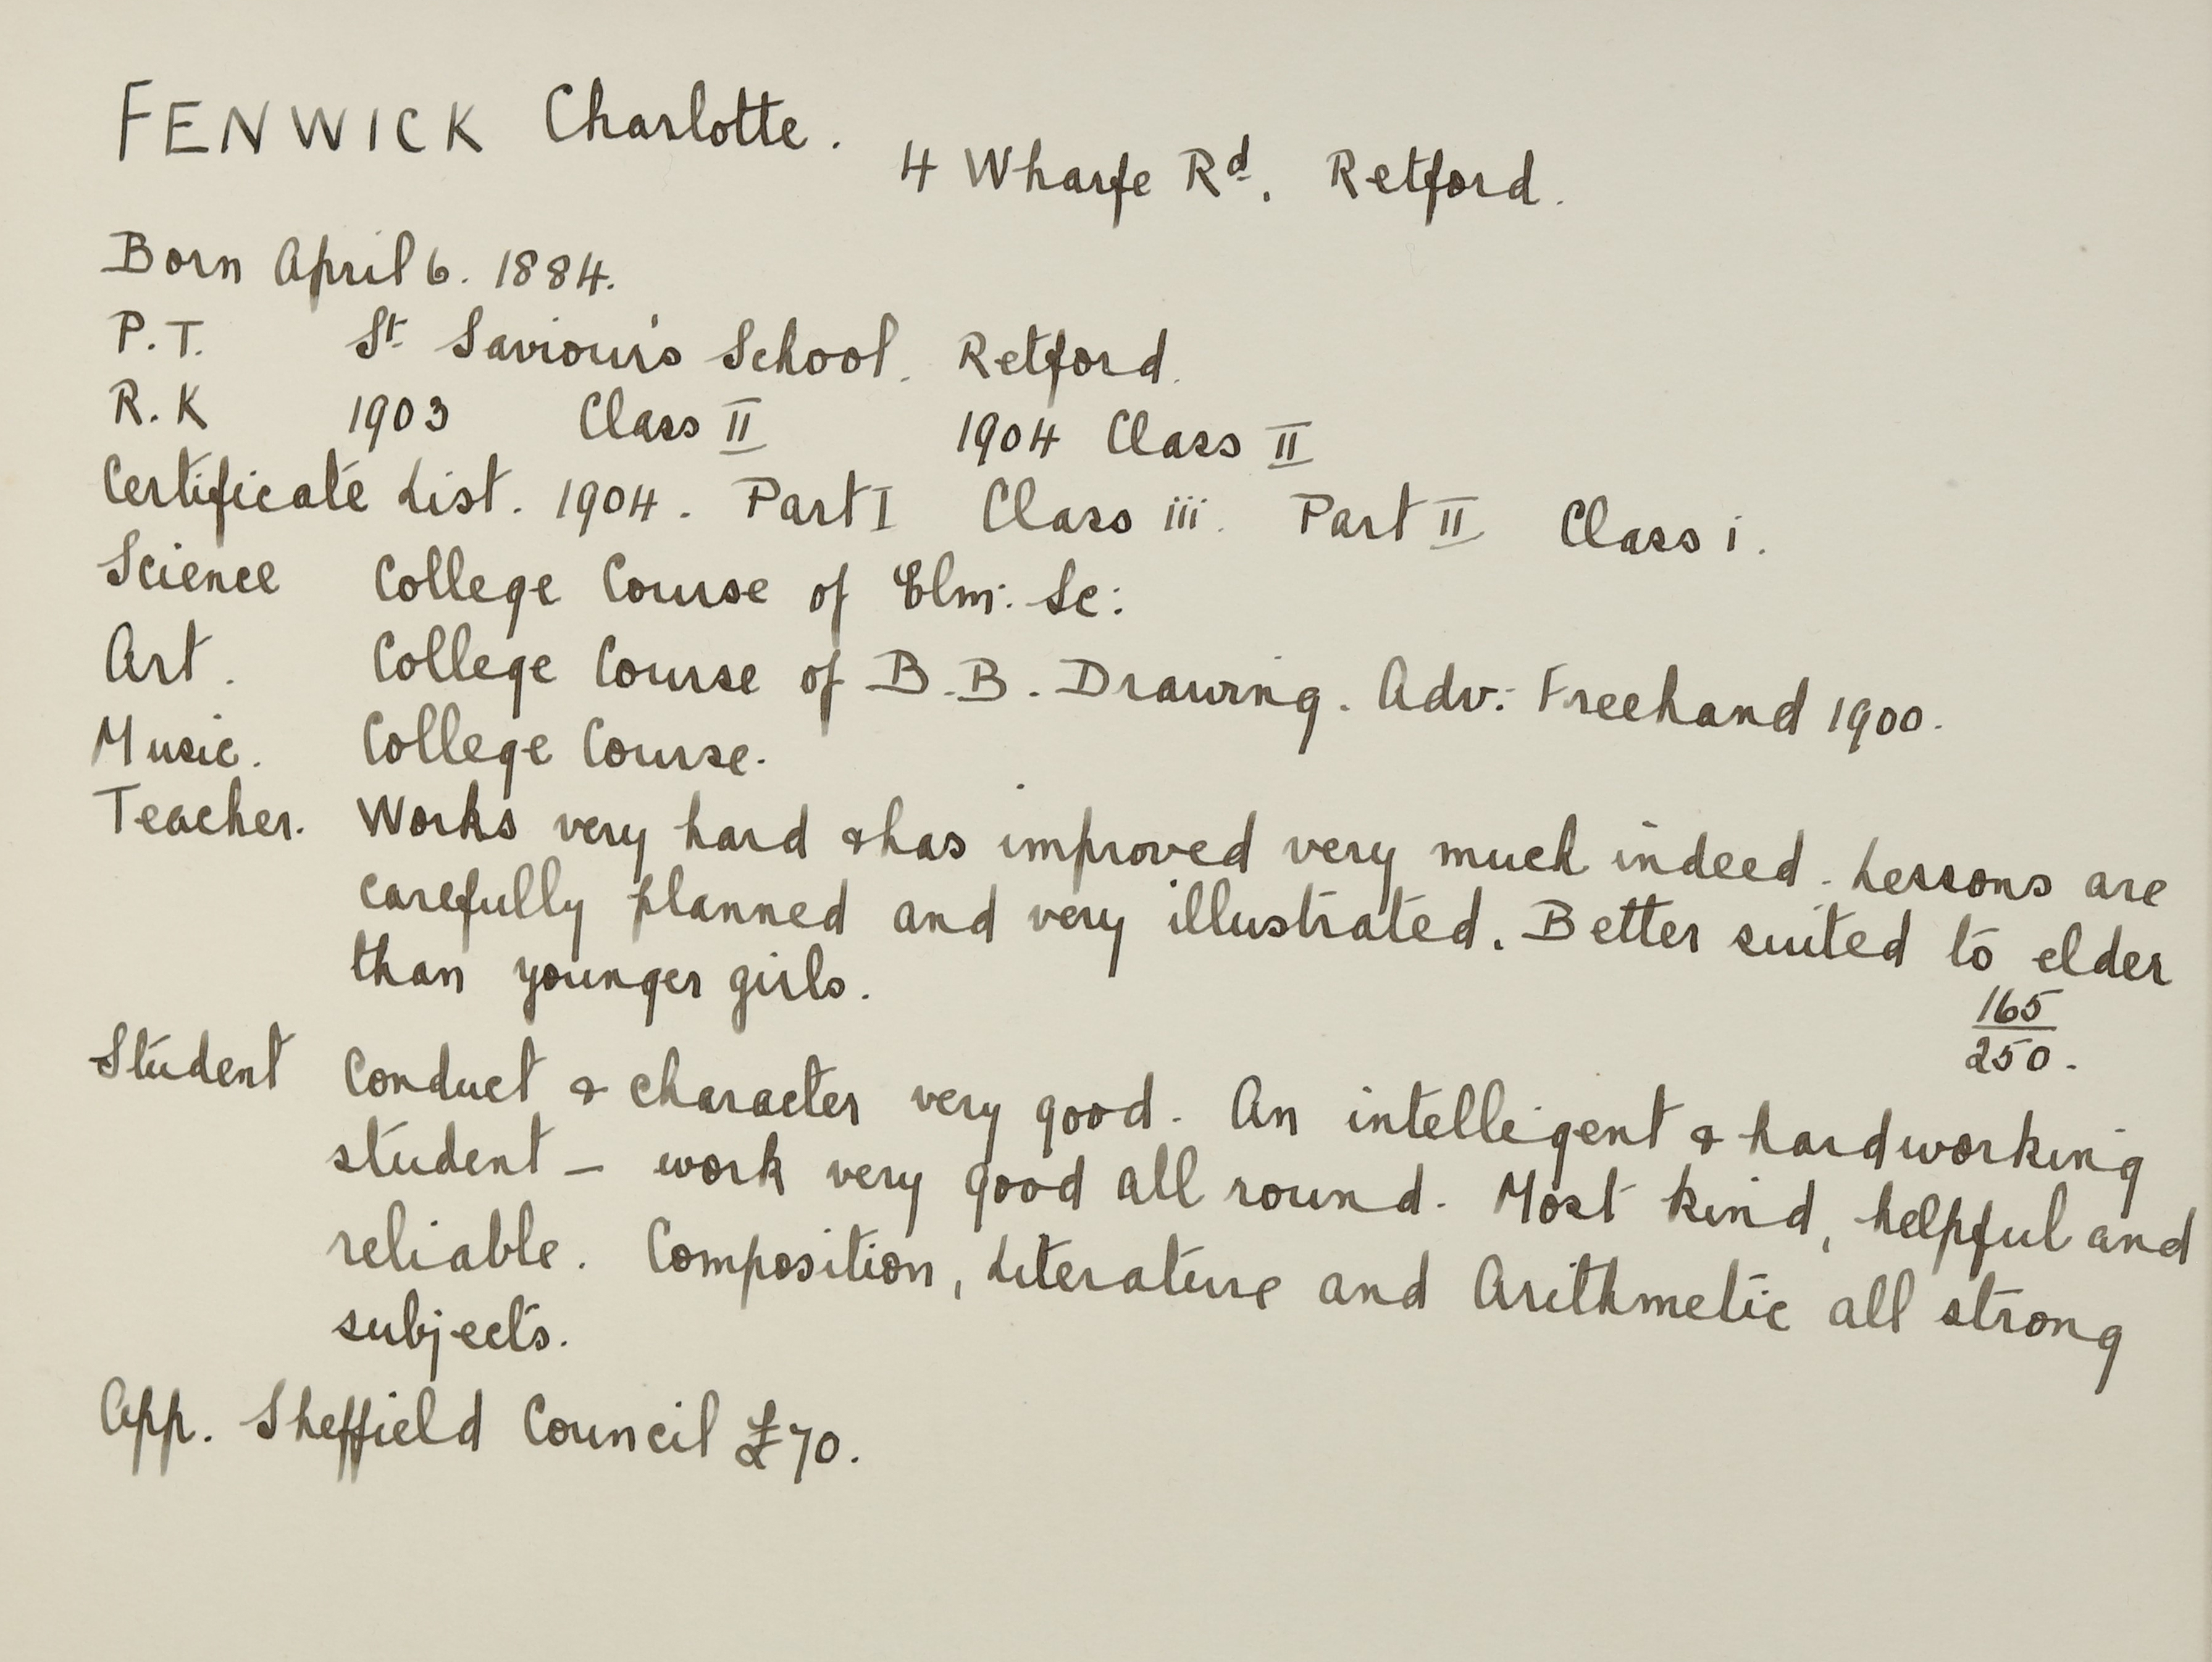 FENWICK Charlotte. 4 Wharfe Rd. Retford.
Born April 6. 1884.
P.T. St Saviour's School. Retford.
R.K 1903 Class II 1904 Class II
Certificate List. 1904. Part I Class iii. Part II Class i.
Science College Course of Elm: Sc:
Art. College Course of B.B. Drawing. Adv: Freehand 1900.
Music. College Course.
Teacher. Works very hard & has improved very much indeed. Lessons are
carefully planned and very illustrated. Better suited to elder
than younger girls.
165
250.
Student Conduct & character very good. An intelligent & hardworking
student – work very good all round. Most kind, helpful and
reliable. Composition, Literature and Arithmetic all strong
subjects.
App. Sheffield Council £70.